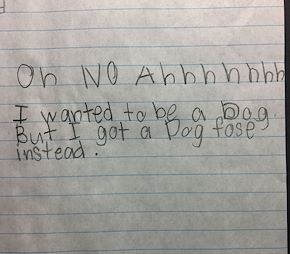 Oh NO Ahhhhhhh
I wanted to be a Dog.
But I got a Dog fose
instead.